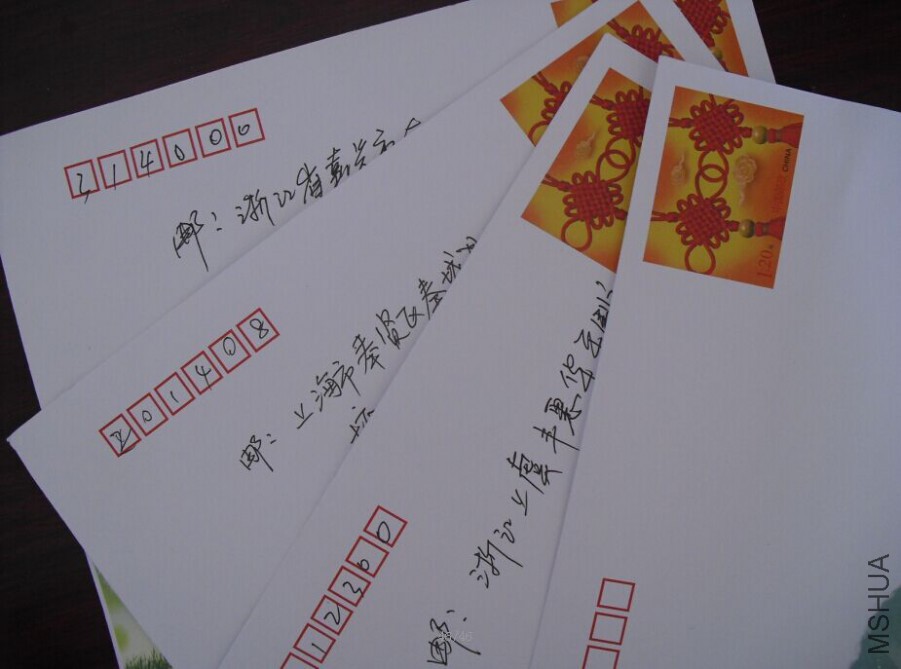 314000
邮：浙江省嘉兴市
201408
邮：上海市奉贤区奉城
12300
邮：浙江上虞丰惠
CHINA
1.20元
MSHUA